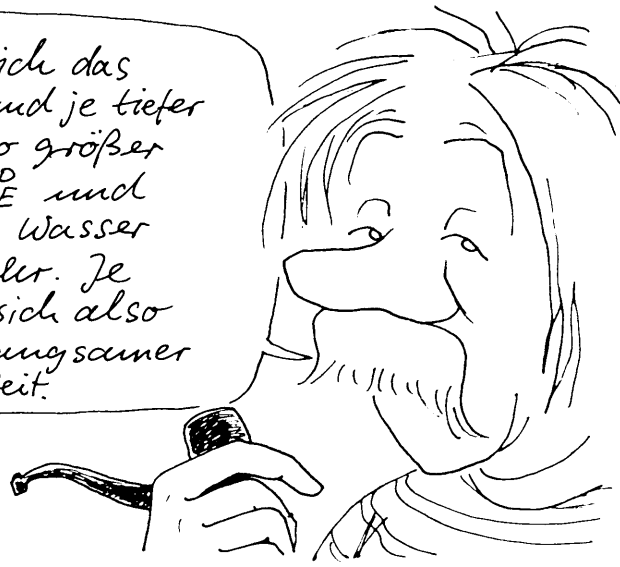 ich das
und je tiefer
o größer
E und
Wasser
hr. Je
sich also
ungsamer
eit.